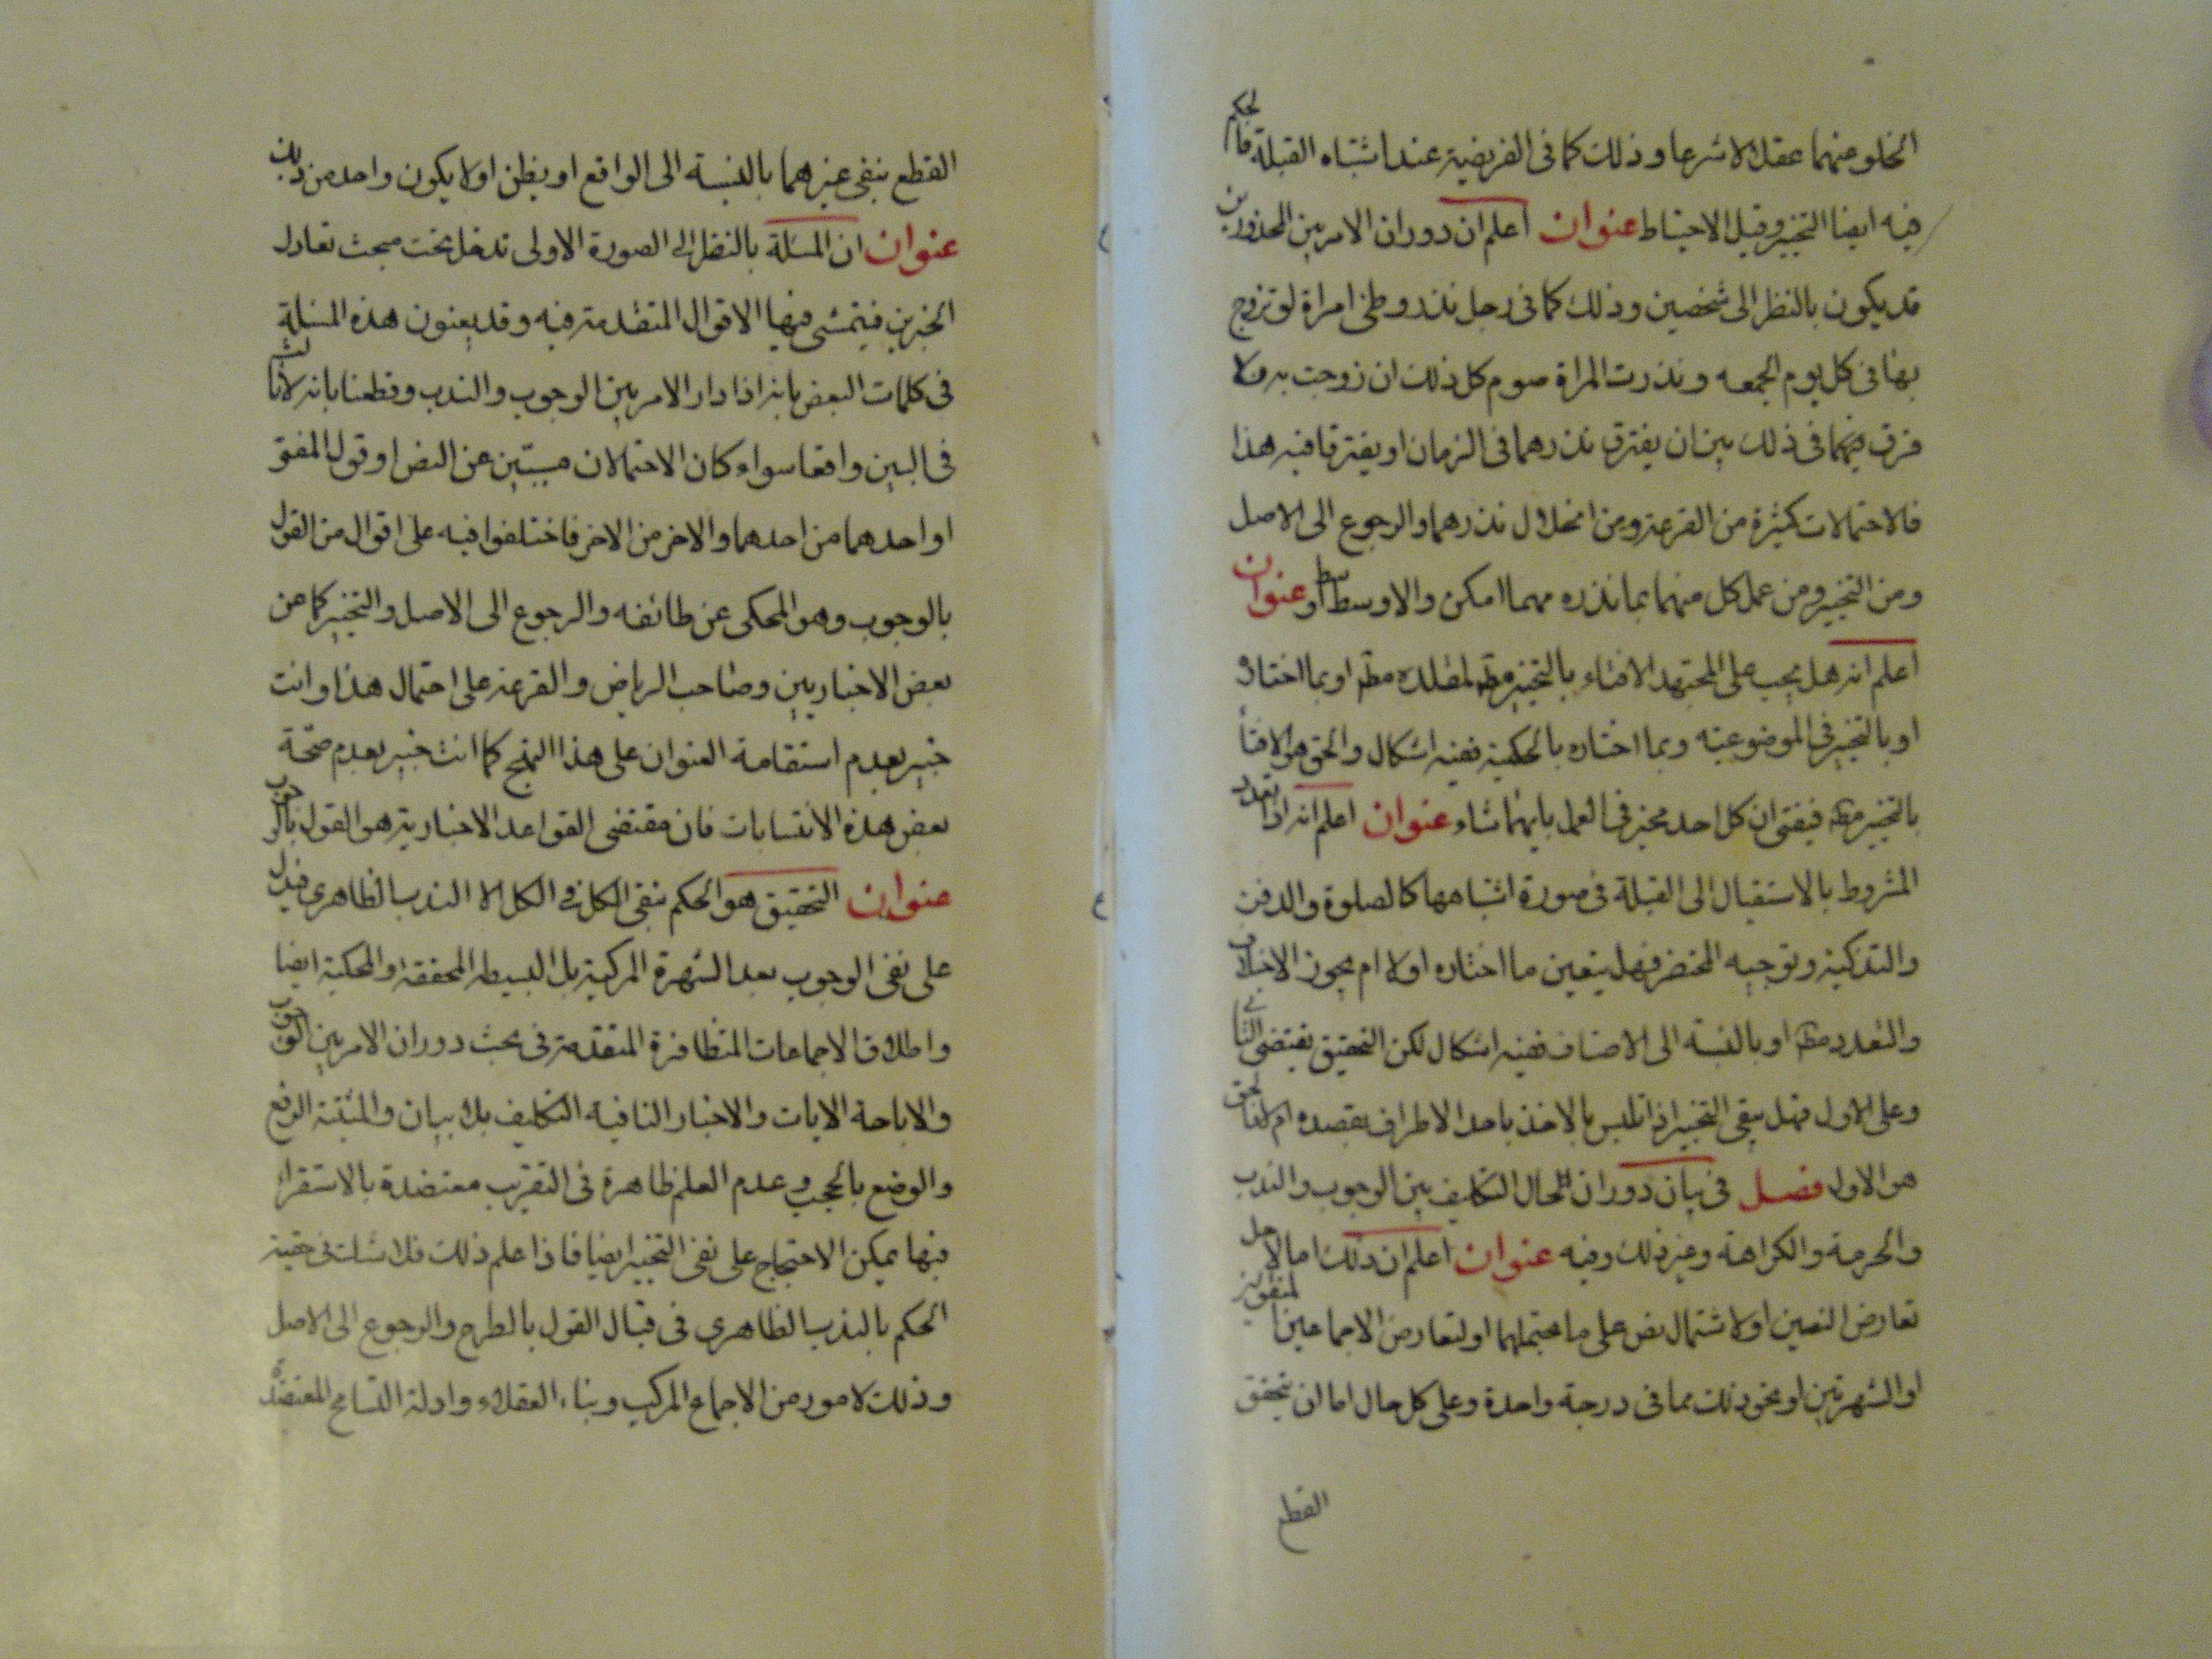 الخلو عنهما عقلا لا شرعا وذلك كما فى الفريضة عند اشتباه القبلة فالحكم
فيه ايضا التخيير وقيل الاحتياط عنوان اعلم ان دوران الامر بين المحذورين
قد يكون بالنظر الى شخصين وذلك كما فى رجل نذر وطئ امراة لو تزوج
بها فى كل يوم الجمعه ونذرت المراة صوم كل ذلك ان زوجت به فلا
فرق بينهما فى ذلك بين ان يفترق نذرهما فى الزمان او يفترقا فيه هذا
فالاحتمالات كثيرة من القرعة ومن انحلال نذرهما والرجوع الى الاصل
ومن التخيير ومن عمل كل منهما بما نذره مهما امكن والاوسط اوسط عنوان
اعلم انه هل يجب على المجتهد الافتاء بالتخيير مطه لمقلده مطه او بما اختاره
او بالتخيير فى الموضوعية وبما اختاره بالحكمية ففيه اشكال والحق هو الافتاء
بالتخيير مطه فيفتى ان كل احد مخير فى العمل بايهما شاء عنوان اعلم انه اذا تعدد
المشروط بالاستقبال الى القبلة فى صورة اشتباهها كالصلوة والدفن
والتذكية وتوجيه المحتضر فهل يتعين ما اختاره اولا ام يجوز الاختلاف
والتعدد مطه او بالنسبة الى الاصناف ففيه اشكال لكن التحقيق يقتضى الثانى
وعلى الاول فهل يبقى التخيير اذا تلبس بالاخذ باحد الاطراف بقصده ام لا فالحق
هو الاول فصل فى بيان دوران الحال التكليف بين الوجوب والندب
والحرمة والكراهة وغير ذلك وفيه عنوان اعلم ان ذلك اما لاجل
تعارض النصين او لاشتمال نص على ما يحتملهما او لتعارض الاجماعين المنقولين
او الشهرتين او نحو ذلك مما فى درجة واحدة وعلى كل حال اما ان يتحقق
القطع
القطع بنفى غيرهما بالنسبة الى الواقع او يظن او لا يكون واحد من ذلك
عنوان ان المسئلة بالنظر الى الصورة الاولى تدخل تحت مبحث تعادل
الخبرين فيتمشى فيها الاقوال المتقدمة فيه وقد يعنون هذه المسئلة
فى كلمات البعض بانه اذا دار الامر بين الوجوب والندب وقطعنا بانه لا ثالث
فى البين واقعا سواء كان الاحتمالان مسببين عن النص او قول المفتى
او احدهما من احدهما والاخر من الاخر فاختلفوا فيه على اقوال من القول
بالوجوب وهو المحكى عن طائفه والرجوع الى الاصل والتخيير كما عن
بعض الاخباريين وصاحب الرياض والقرعة على احتمال هذا وانت
خبير بعدم استقامة العنوان على هذا النهج كما انت خبير بعدم صحة
بعض هذة الانتسابات فان مقتضى القواعد الاخبارية هو القول بالوجوب
عنوان التحقيق هو الحكم بنفى الكل فى الكل الا الندب الظاهرى فيدل
على نفى الوجوب بعد الشهرة المركبة بل البسيطه المحققة والمحكية ايضا
واطلاق الاجماعات المتظافرة المتقدمة فى بحث دوران الامر بين الوجوب
والاباحة الايات والاخبار النافية التكليف بلا بيان والمثبتة الرفع
والوضع بالحجب وعدم العلم ظاهرة فى التقريب معتضدة بالاستقراء
فبها يمكن الاحتجاج على نفى التخيير ايضا فاذا علم ذلك فلا شك فى حقية
الحكم بالندب الظاهرى فى قبال القول بالطرح والرجوع الى الاصل
وذلك لامور من الاجماع المركب وبناء العقلاء وادلة التسامح المعتضدة